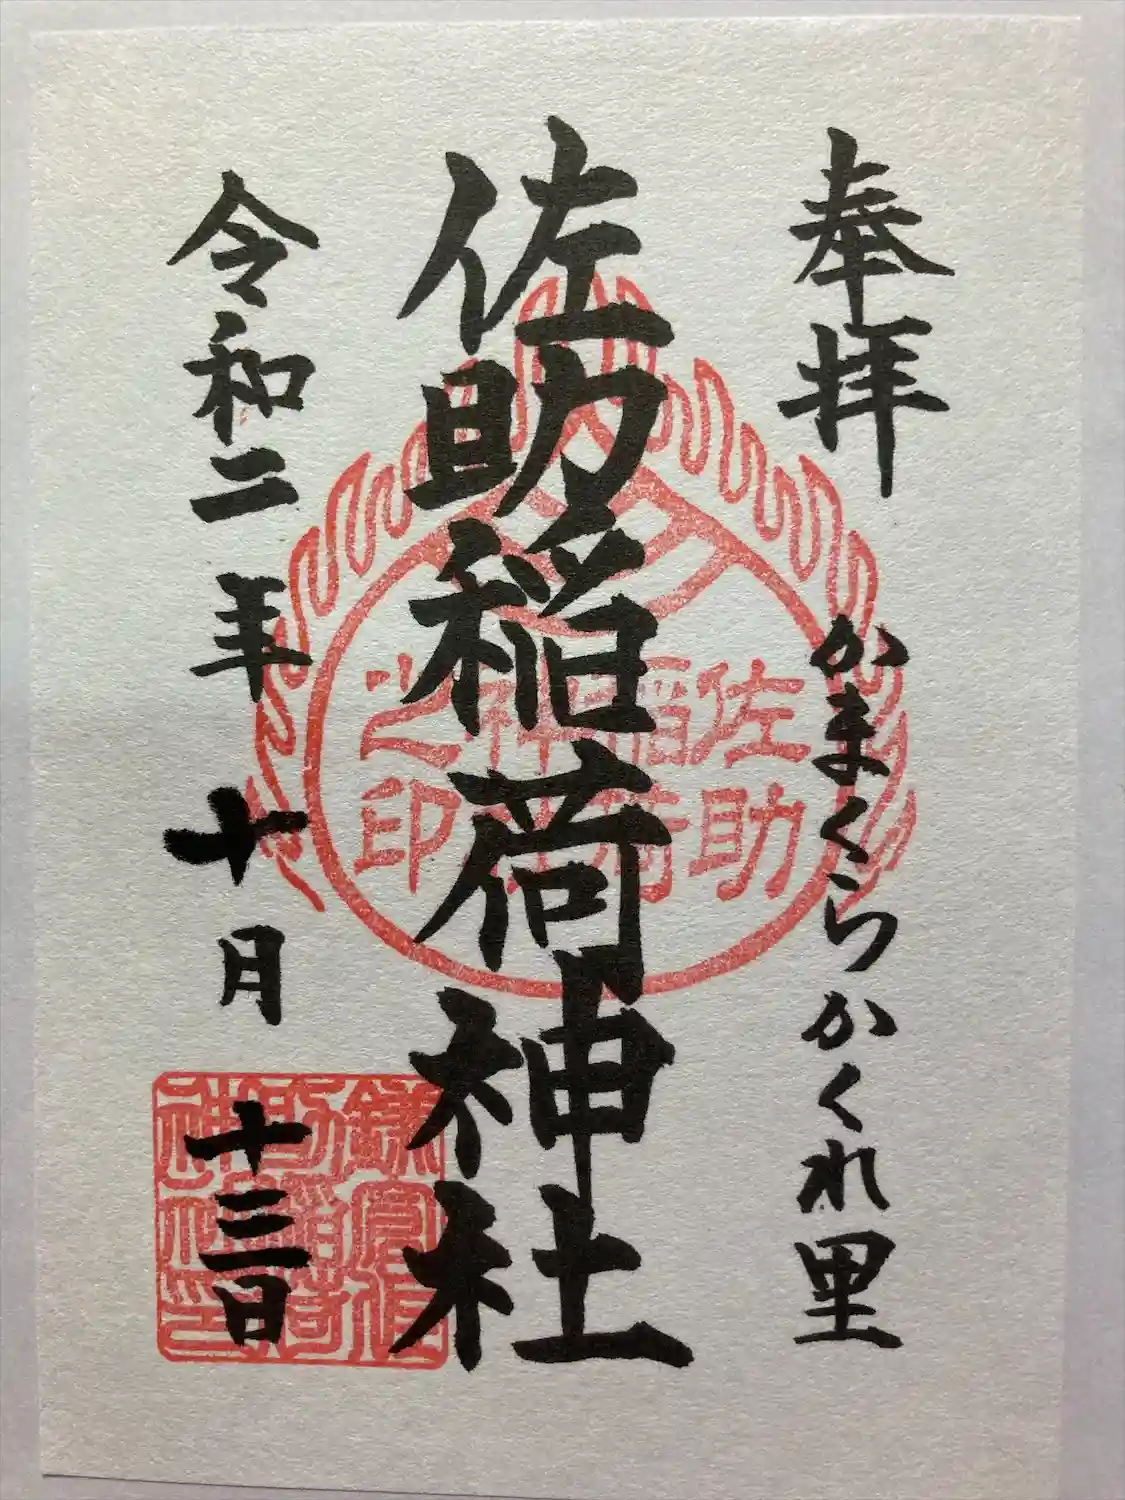 奉拝
かまくらかくれ里
佐助稲荷神社
令和二年十月十三日
佐助
稲荷
神社
之印